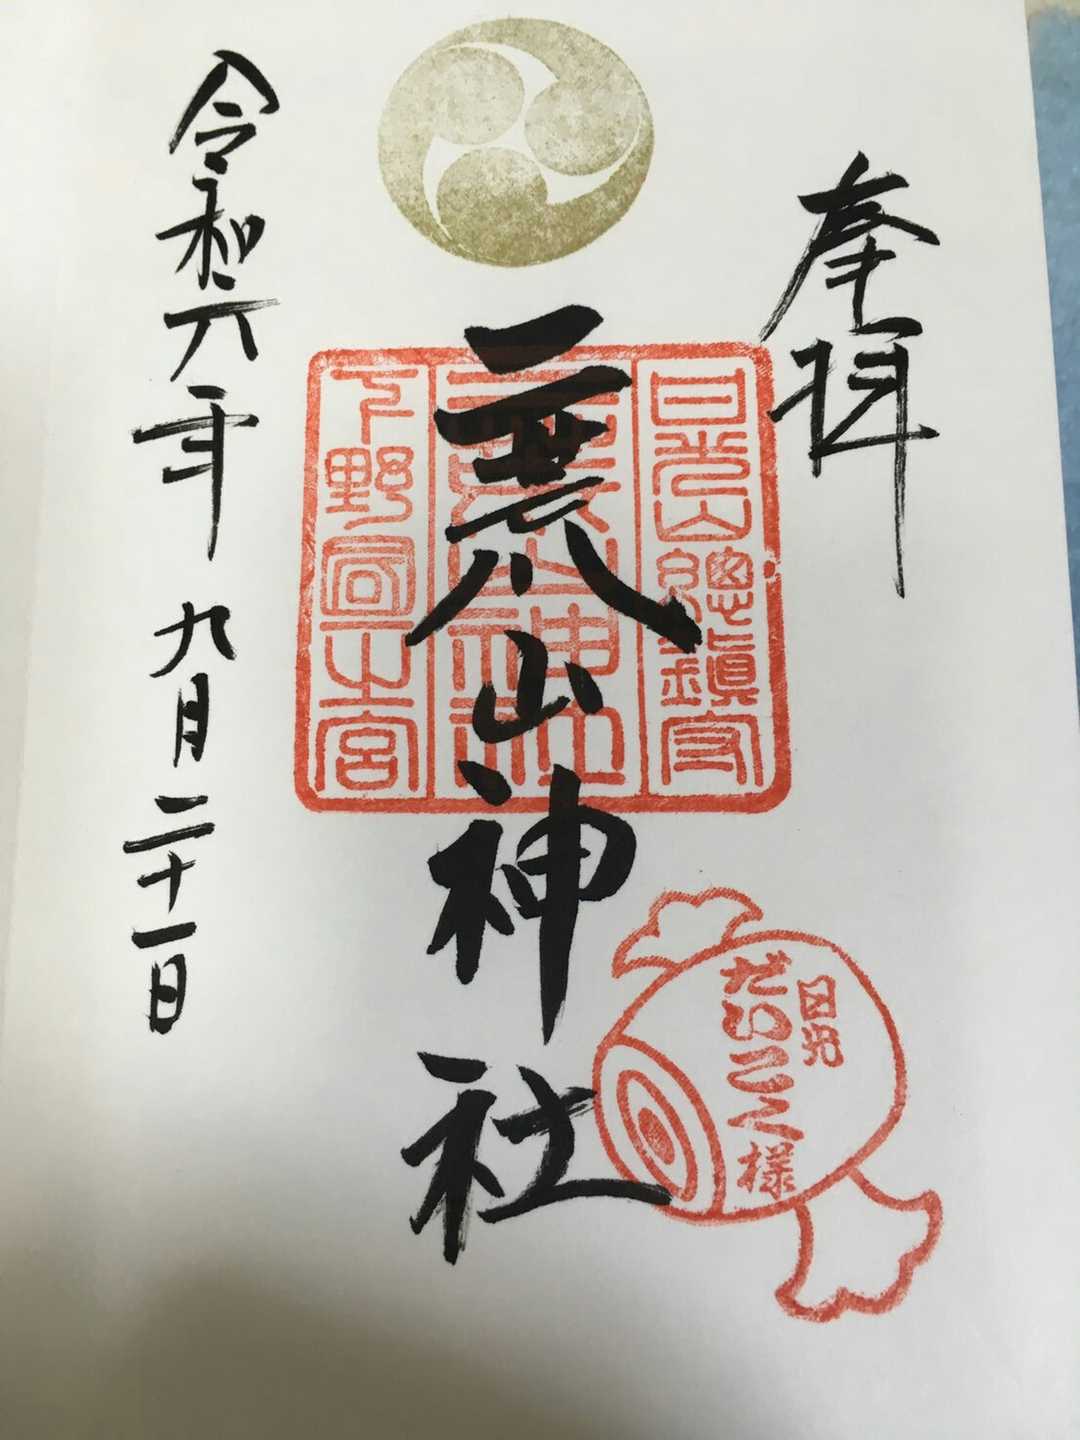 奉拝
日光山總鎮守
二荒山神社
下野国一宮
二荒山神社
日光
だいこく様
令和六年 九月二十一日